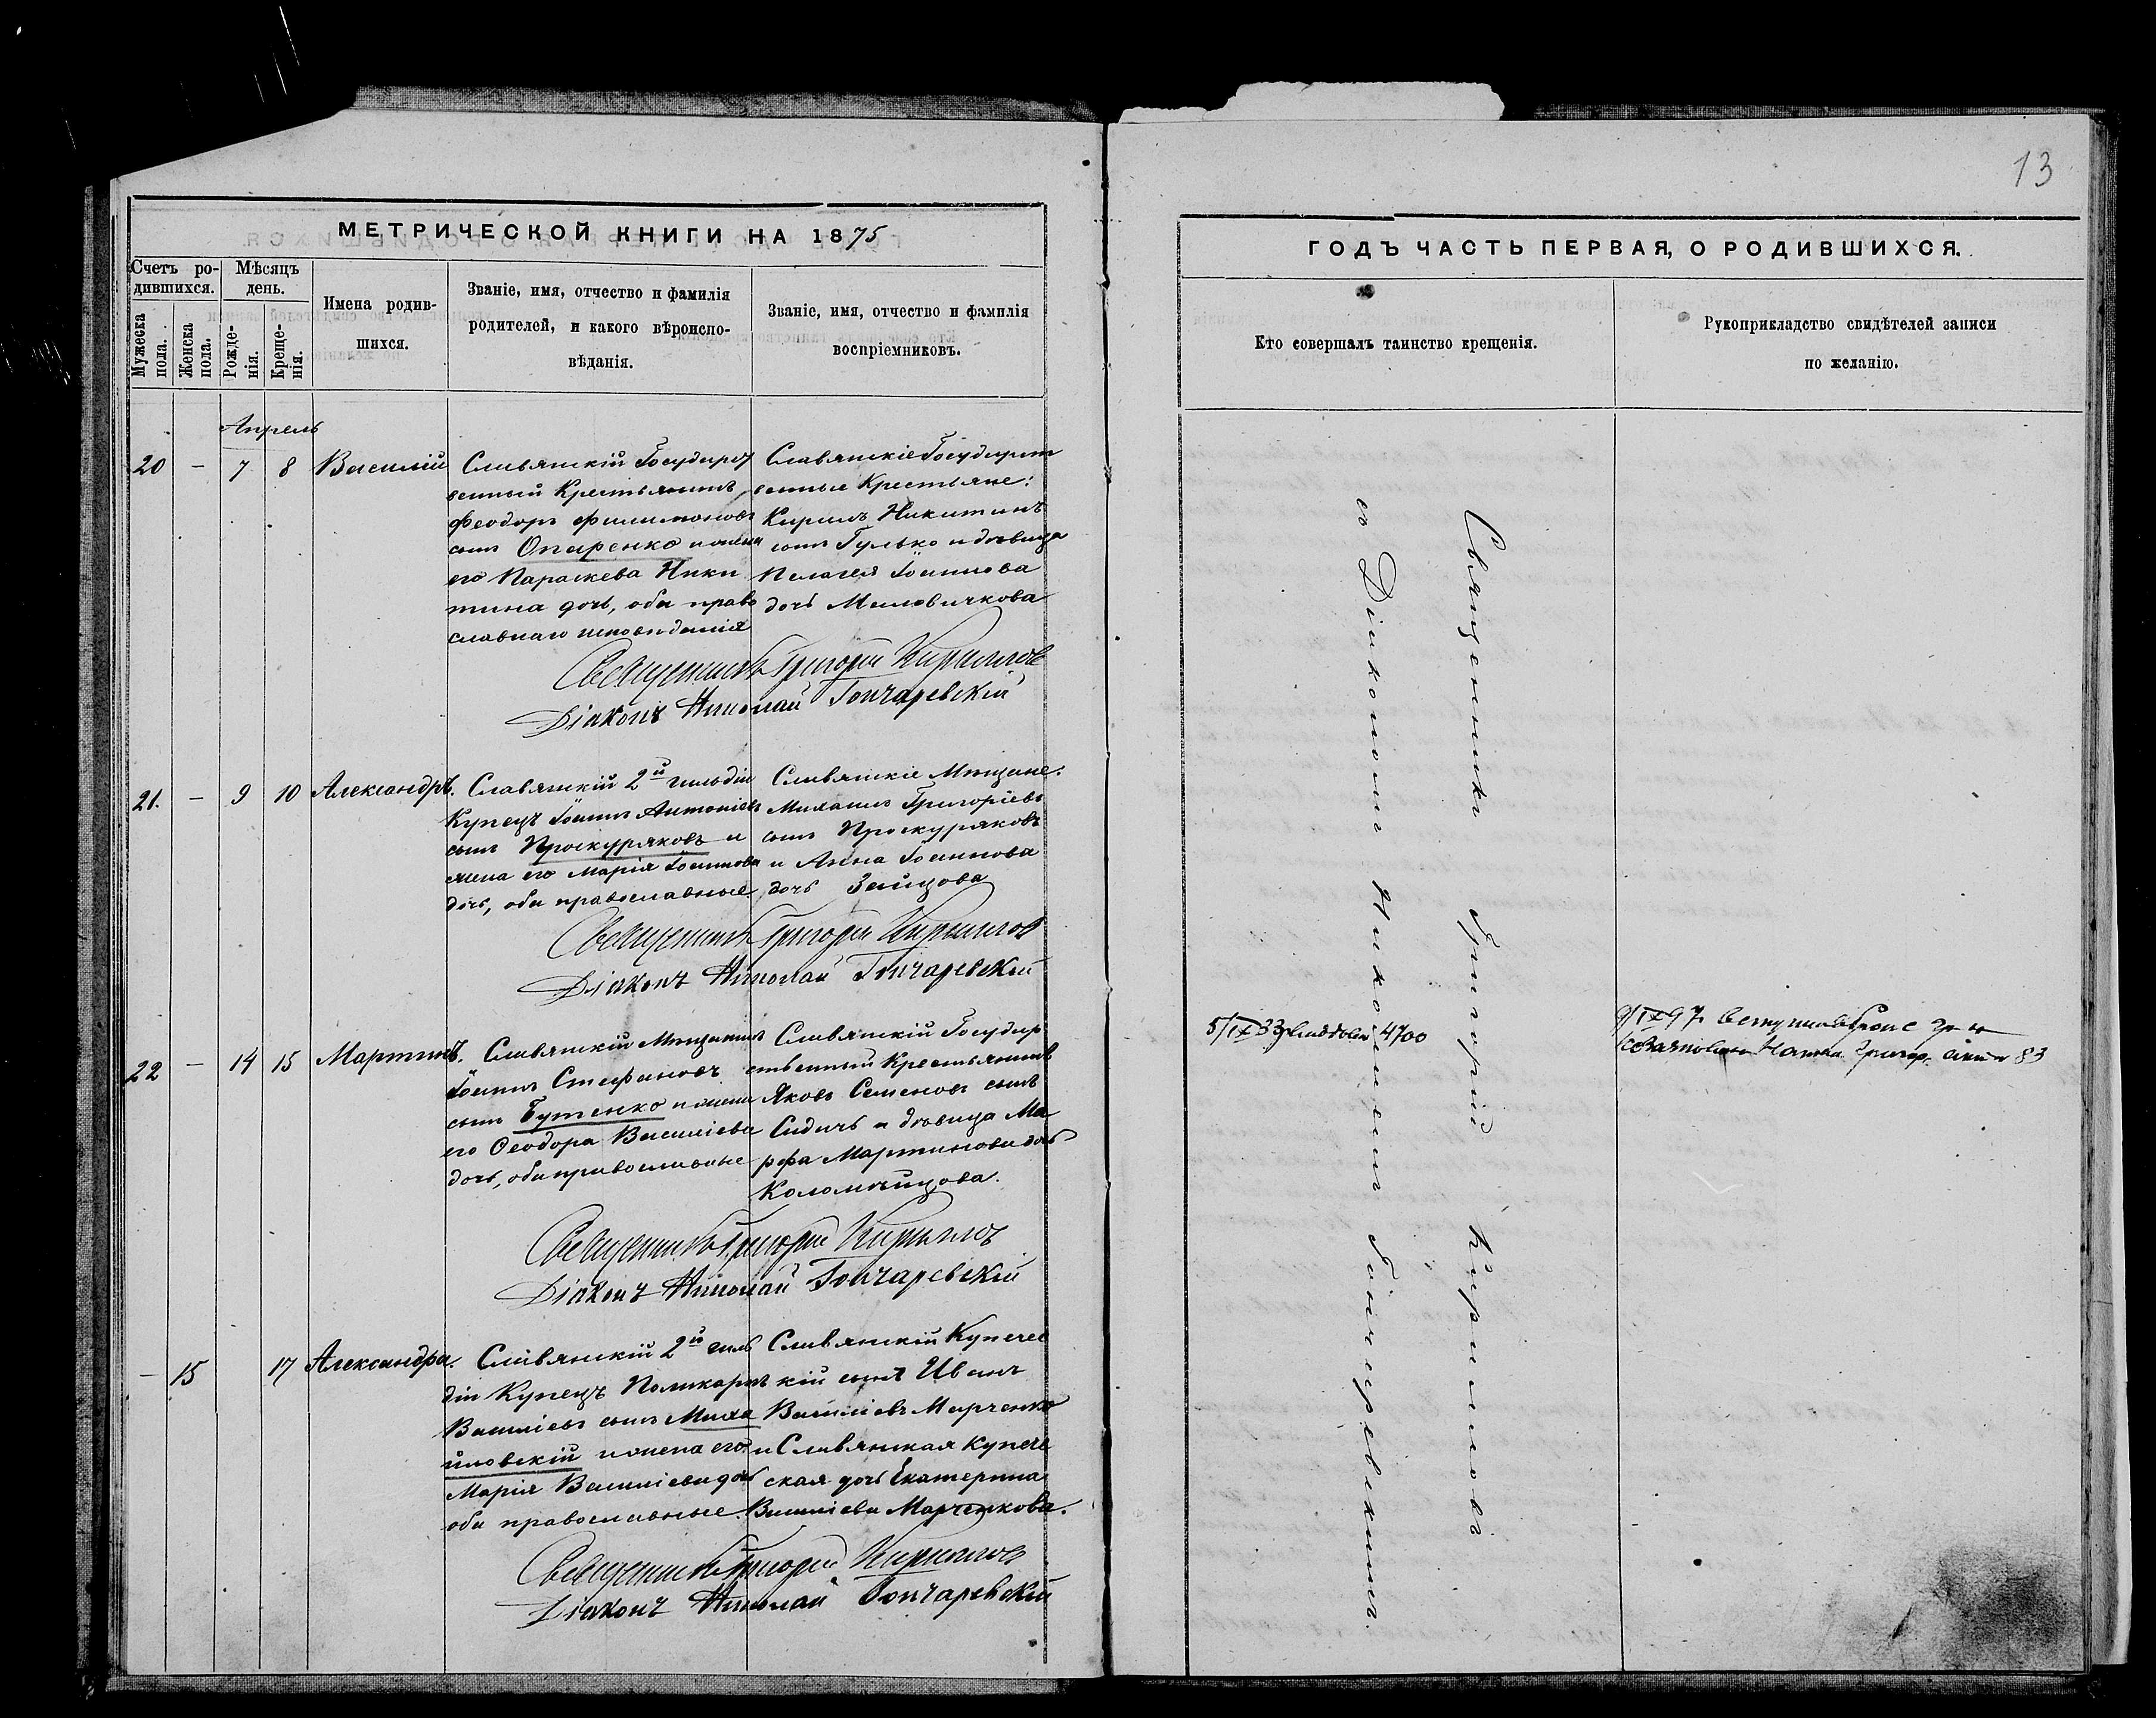 13
МЕТРИЧЕСКОЙ КНИГИ НА 1875
ГОДЪ ЧАСТЬ ПЕРВАЯ, О РОДИВШИХСЯ.
Счетъ ро-
дившихся.
Мужеска пола.
Женска пола.
Мѣсяцъ
день.
Рожде-
нія.
Креще-
нія.
Имена родив-
шихся.
Званіе, имя, отчество и фамилія
родителей, и какого вѣроиспо-
вѣданія.
Званіе, имя, отчество и фамилія
воспріемниковъ.
Кто совершалъ таинство крещенія.
Рукоприкладство свидѣтелей записи
по желанію.
Апрель
20 – 7 8 Василій
Славянскій Государст
венный Крестьянинъ,
Феодоръ Филимоновъ
сынъ Опаренко и жена
его Параскева Ники
тина дочь, оба право
славнаго исповѣданія
Славянскіе Государст
венные Крестьяне:
Кирилъ Никитинъ
сынъ Гулько и дѣвица
Пелагея Іоаннова
дочь Миловичкова
Священникъ Григорій Кирилловъ
Діаконъ Николай Гончаревскій
21. – 9 10 Александръ.
Славянскій 2й гильдіи
Купецъ Іоаннъ Антоніевъ
сынъ Проскуряковъ и
жена его Марія Іоаннова
дочь, оба православные.
Славянскіе Мѣщане:
Михаилъ Григоріевъ
сынъ Проскуряковъ
и Анна Іоаннова
дочь Зайцова
Священникъ Григорій Кирилловъ
Діаконъ Николай Гончаревскій
22 – 14 15 Мартинъ.
Славянскій Мѣщанинъ
Іоаннъ Стефановъ
сынъ Бутенко и жена
его Феодора Василіева
дочь, оба православные
Славянскій Государ
ственный Крестьянинъ
Яковъ Семеновъ сынъ
Сидичъ и дѣвица Ма
рфа Мартинова дочь
Коломѣйцова.
Священникъ Григорій Кирилловъ
Діаконъ Николай Гончаревскій
– 15 17 Александра.
Славянскій 2й гиль
діи Купецъ Поликарпъ
Василіевъ сынъ Миха
йловскій и жена его
Марія Василіева дочь
оба православные.
Славянскій Купечес
кій сынъ Иванъ
Василіевъ Марченко
и Славянская Купече
ская дочь Екатерина
Василіева Марченкова.
Священникъ Григорій Кирилловъ
Діаконъ Николай Гончаревскій
Священникъ Григорій Кирилловъ
съ Діакономъ Николаемъ Гончаревскимъ.
5/IX 33 4700
9/IX 97
83